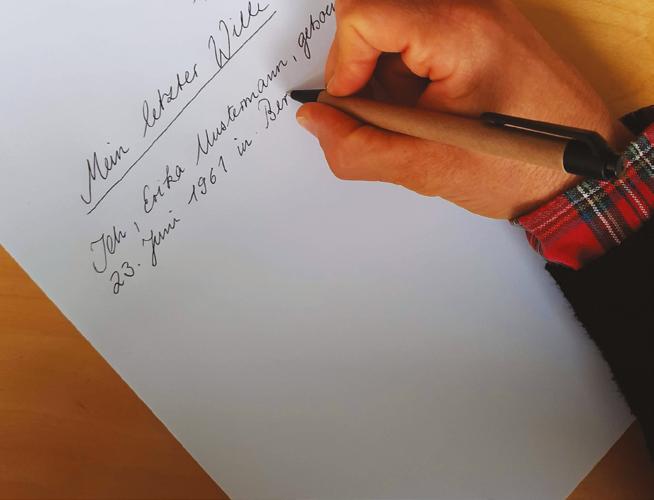 Mein letzter Wille
Ich, Erika Mustermann, gebor
23. Juni 1961 in Ber